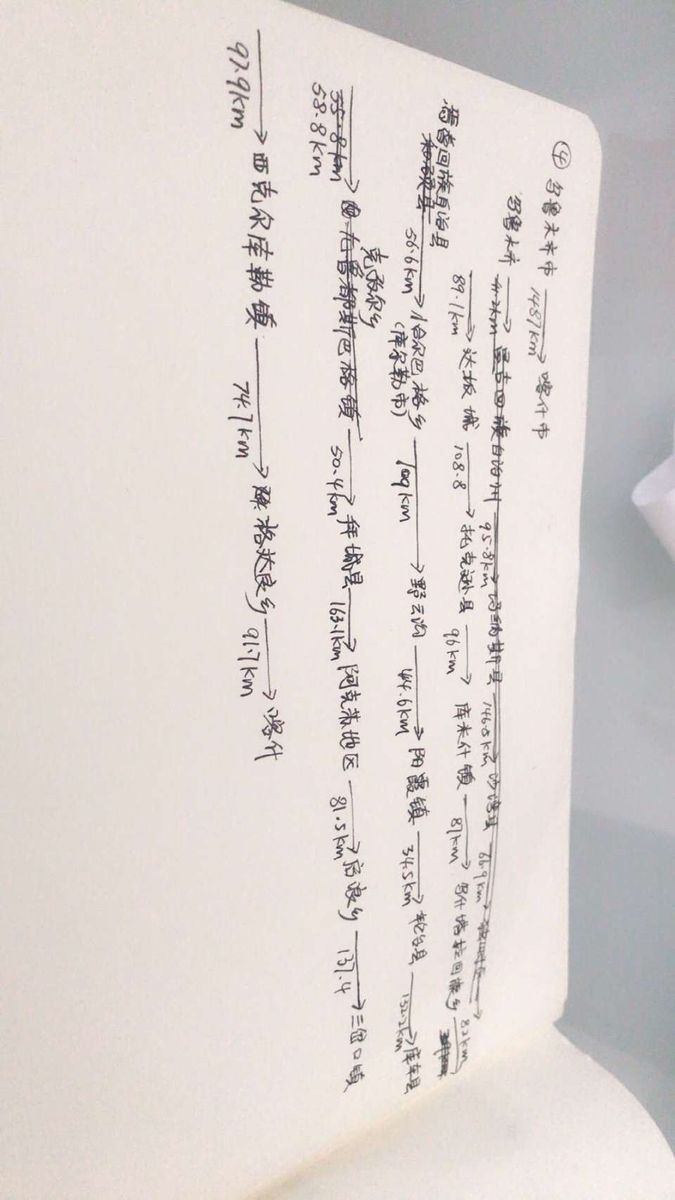 ④ 乌鲁木齐市 1487km→ 喀什市
乌鲁木齐 → 昌吉回族自治州 95.8km→ 玛纳斯县 146.5km→ 沙湾县 66.9km→
89.1km→ 达坂城 108.8→ 托克逊县 96km→ 库米什镇 81km→ 乌什塔拉回族乡 82km→
焉耆回族自治县 56.6km→ 恰尔巴格乡(库尔勒市) 109km→ 野云沟 44.6km→ 阳霞镇 34.5km→ 轮台县 152.2km→ 库车县
58.8km→ 克孜尔乡 50.4km→ 拜城县 163.1km→ 阿克苏地区 81.5km→ 启浪乡 137.4→ 三岔口镇
97.9km→ 西克尔库勒镇 74.7km→ 格达良乡 91.7km→ 喀什